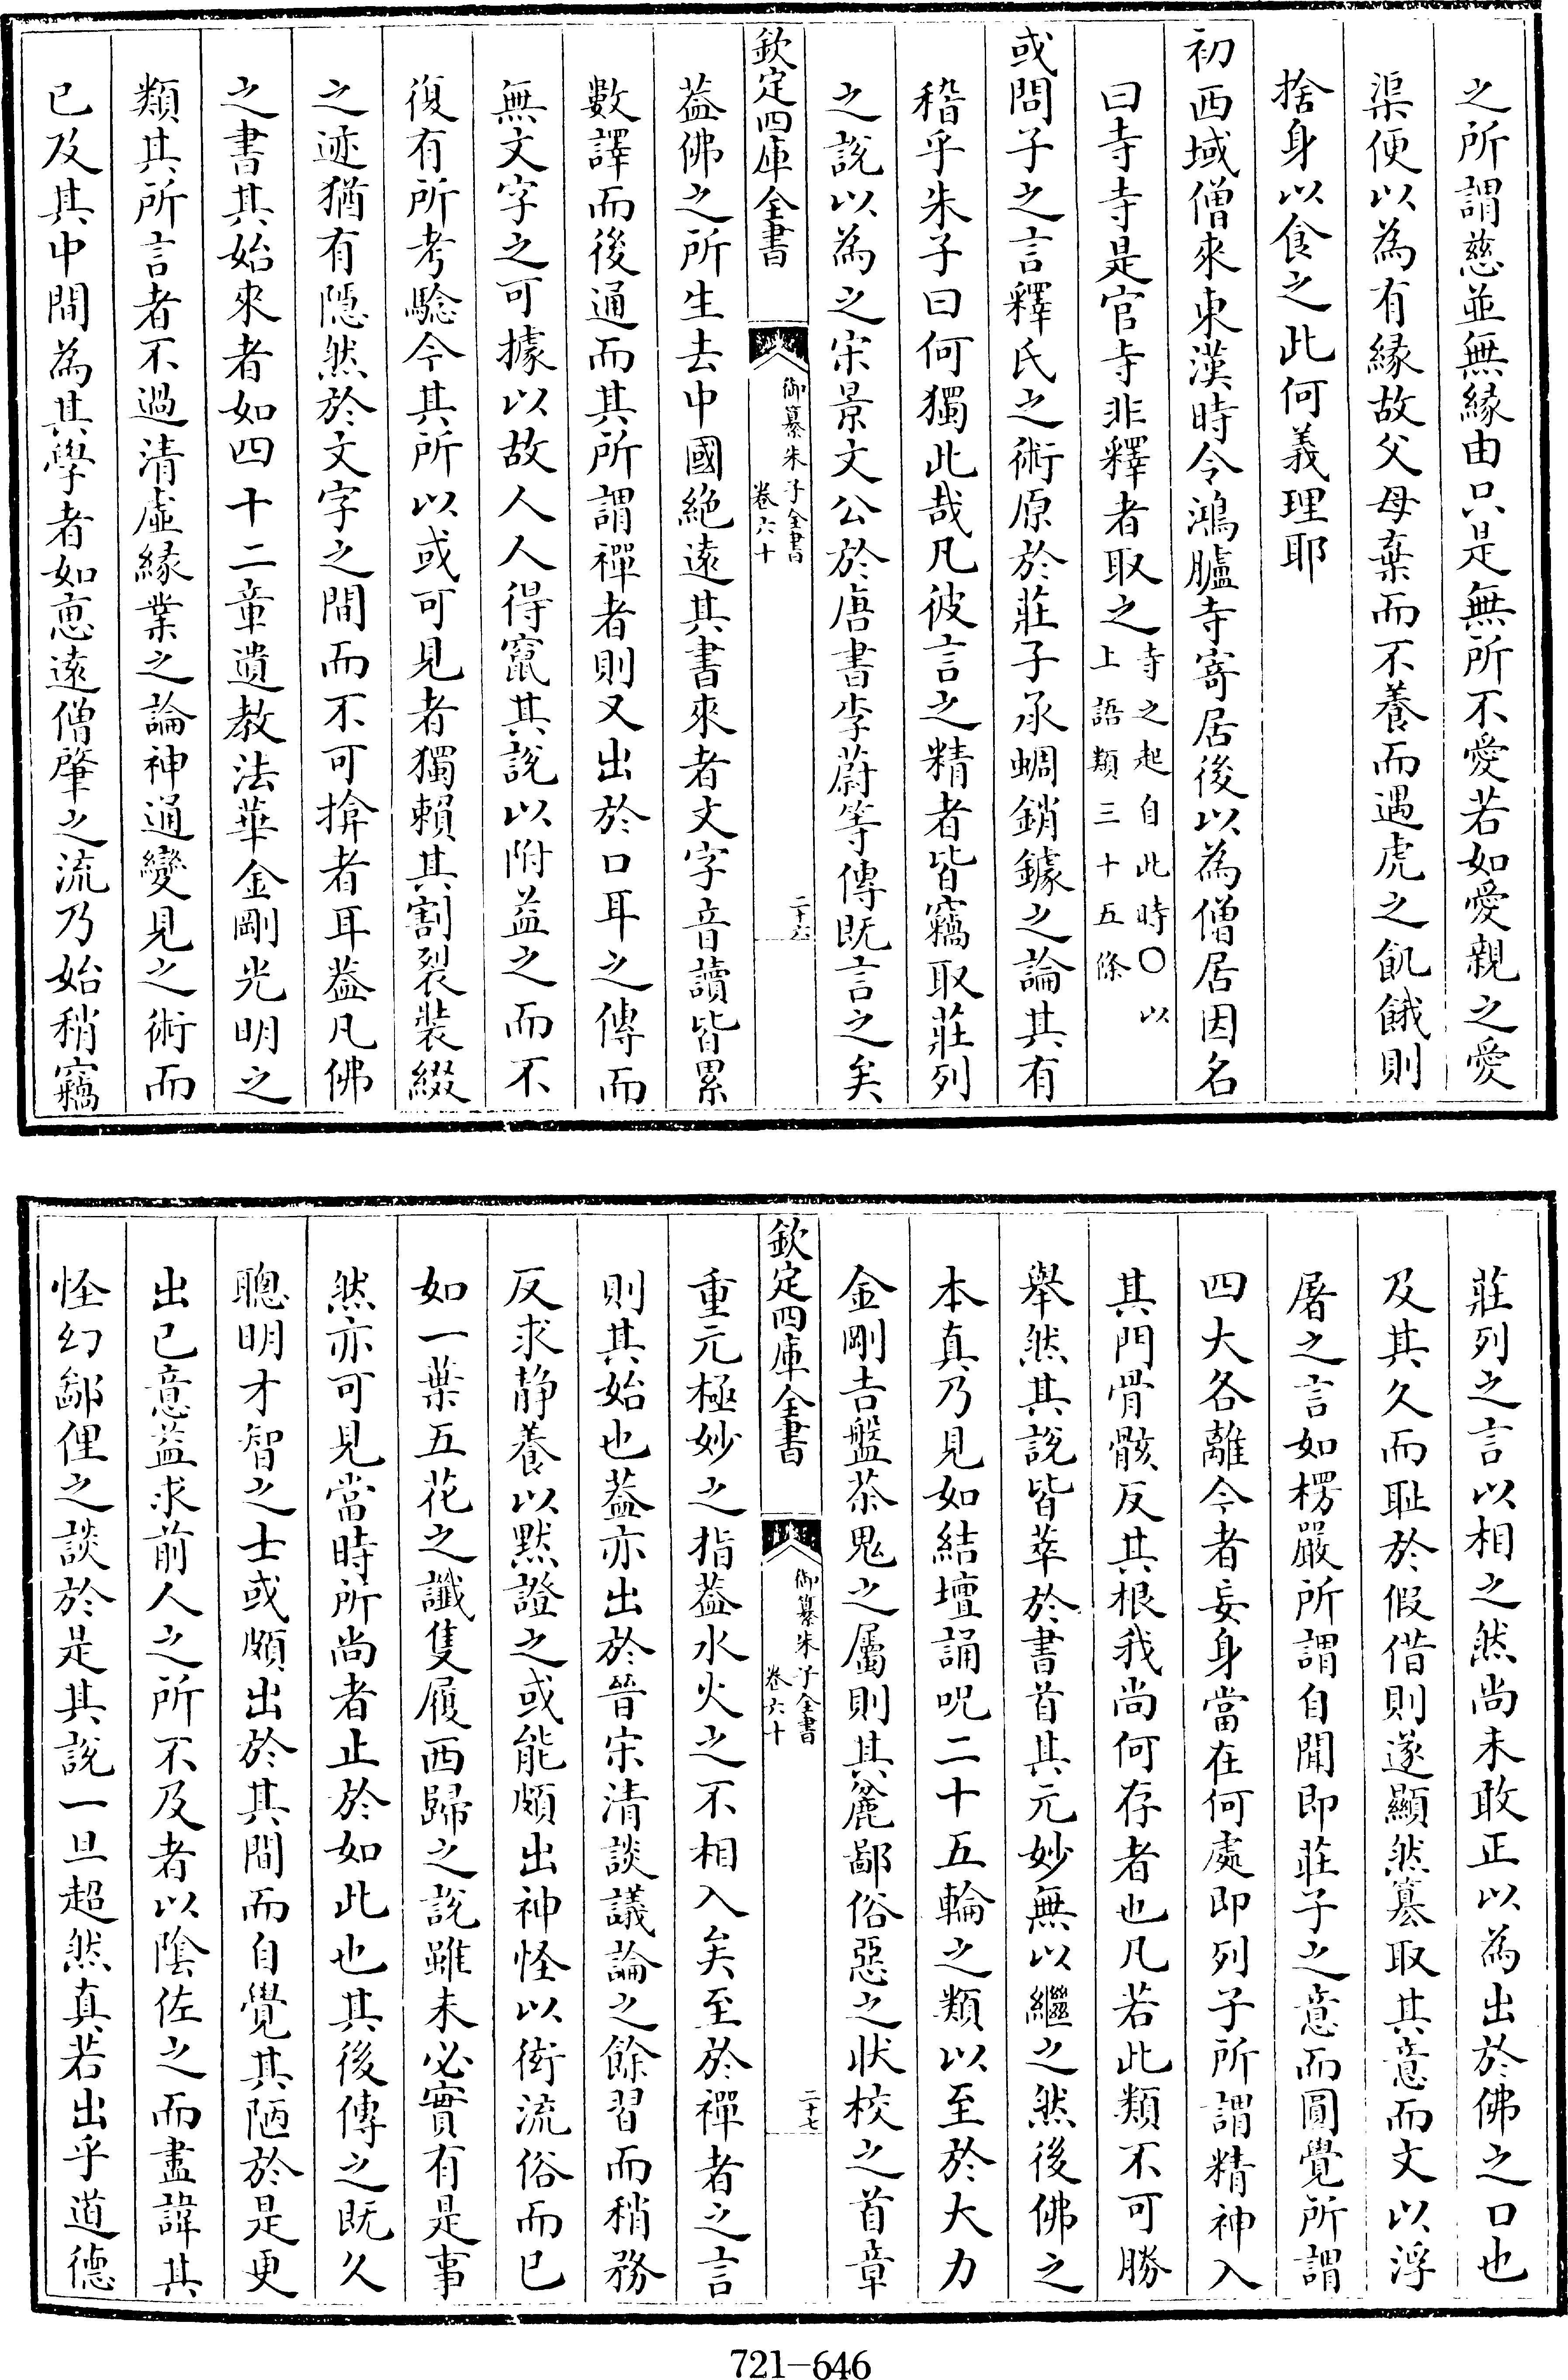 之所謂慈並無緣由只是無所不愛若如愛親之愛
渠便以為有緣故父母棄而不養而遇虎之飢餓則
捨身以食之此何義理耶
初西域僧來東漢時令鴻臚寺寄居後以為僧居因名
曰寺寺是官寺非釋者取之寺之起自此時○以
上語類三十五條
或問子之言釋氏之術原於莊子承蜩銷鐻之論其有
稽乎朱子曰何獨此哉凡彼言之精者皆竊取莊列
之說以為之宋景文公於唐書李蔚等傳既言之矣
欽定四庫全書
御纂朱子全書
卷六十
二十六
葢佛之所生去中國絶遠其書來者文字音讀皆累
數譯而後通而其所謂禪者則又出於口耳之傳而
無文字之可據以故人人得竄其說以附益之而不
復有所考驗今其所以或可見者獨賴其割裂裝綴
之迹猶有隱然於文字之間而不可揜者耳葢凡佛
之書其始來者如四十二章遺教法華金剛光明之
類其所言者不過清虛緣業之論神通變見之術而
已及其中間為其學者如惠遠僧肇之流乃始稍竊
莊列之言以相之然尚未敢正以為出於佛之口也
及其久而恥於假借則遂顯然簒取其意而文以浮
屠之言如楞嚴所謂自聞即莊子之意而圓覺所謂
四大各離今者妄身當在何處即列子所謂精神入
其門骨骸反其根我尚何存者也凡若此類不可勝
舉然其說皆萃於書首其元妙無以繼之然後佛之
本真乃見如結壇誦呪二十五輪之類以至於大力
金剛吉盤荼鬼之屬則其麄鄙俗惡之狀校之首章
欽定四庫全書
御纂朱子全書
卷六十
二十七
重元極妙之指葢水火之不相入矣至於禪者之言
則其始也葢亦出於晉宋清談議論之餘習而稍務
反求静養以黙證之或能頗出神怪以衒流俗而已
如一葉五花之讖隻履西歸之說雖未必實有是事
然亦可見當時所尚者止於如此也其後傳之既久
聰明才智之士或頗出於其間而自覺其陋於是更
出已意葢求前人之所不及者以陰佐之而盡諱其
怪幻鄙俚之談於是其說一旦超然真若出乎道德
721-646